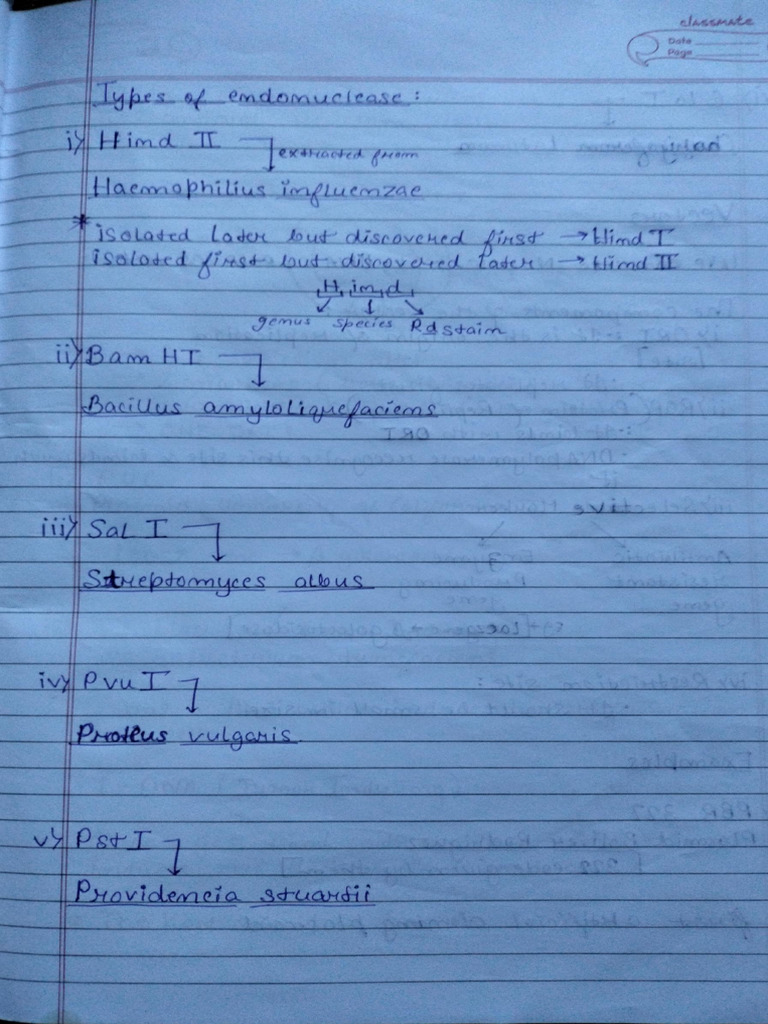 classmate
Date
Page
Types of endonuclease :
i) Hind II
extracted from
Haemophilius influenzae
* isolated later but discovered first → Hind I
isolated first but discovered later → Hind II
H in d
genus species Rd stain
ii) Bam HI
Bacillus amyloliquefaciens
iii) Sal I
Streptomyces albus
iv) Pvu I
Proteus vulgaris
v) Pst I
Providencia stuartii